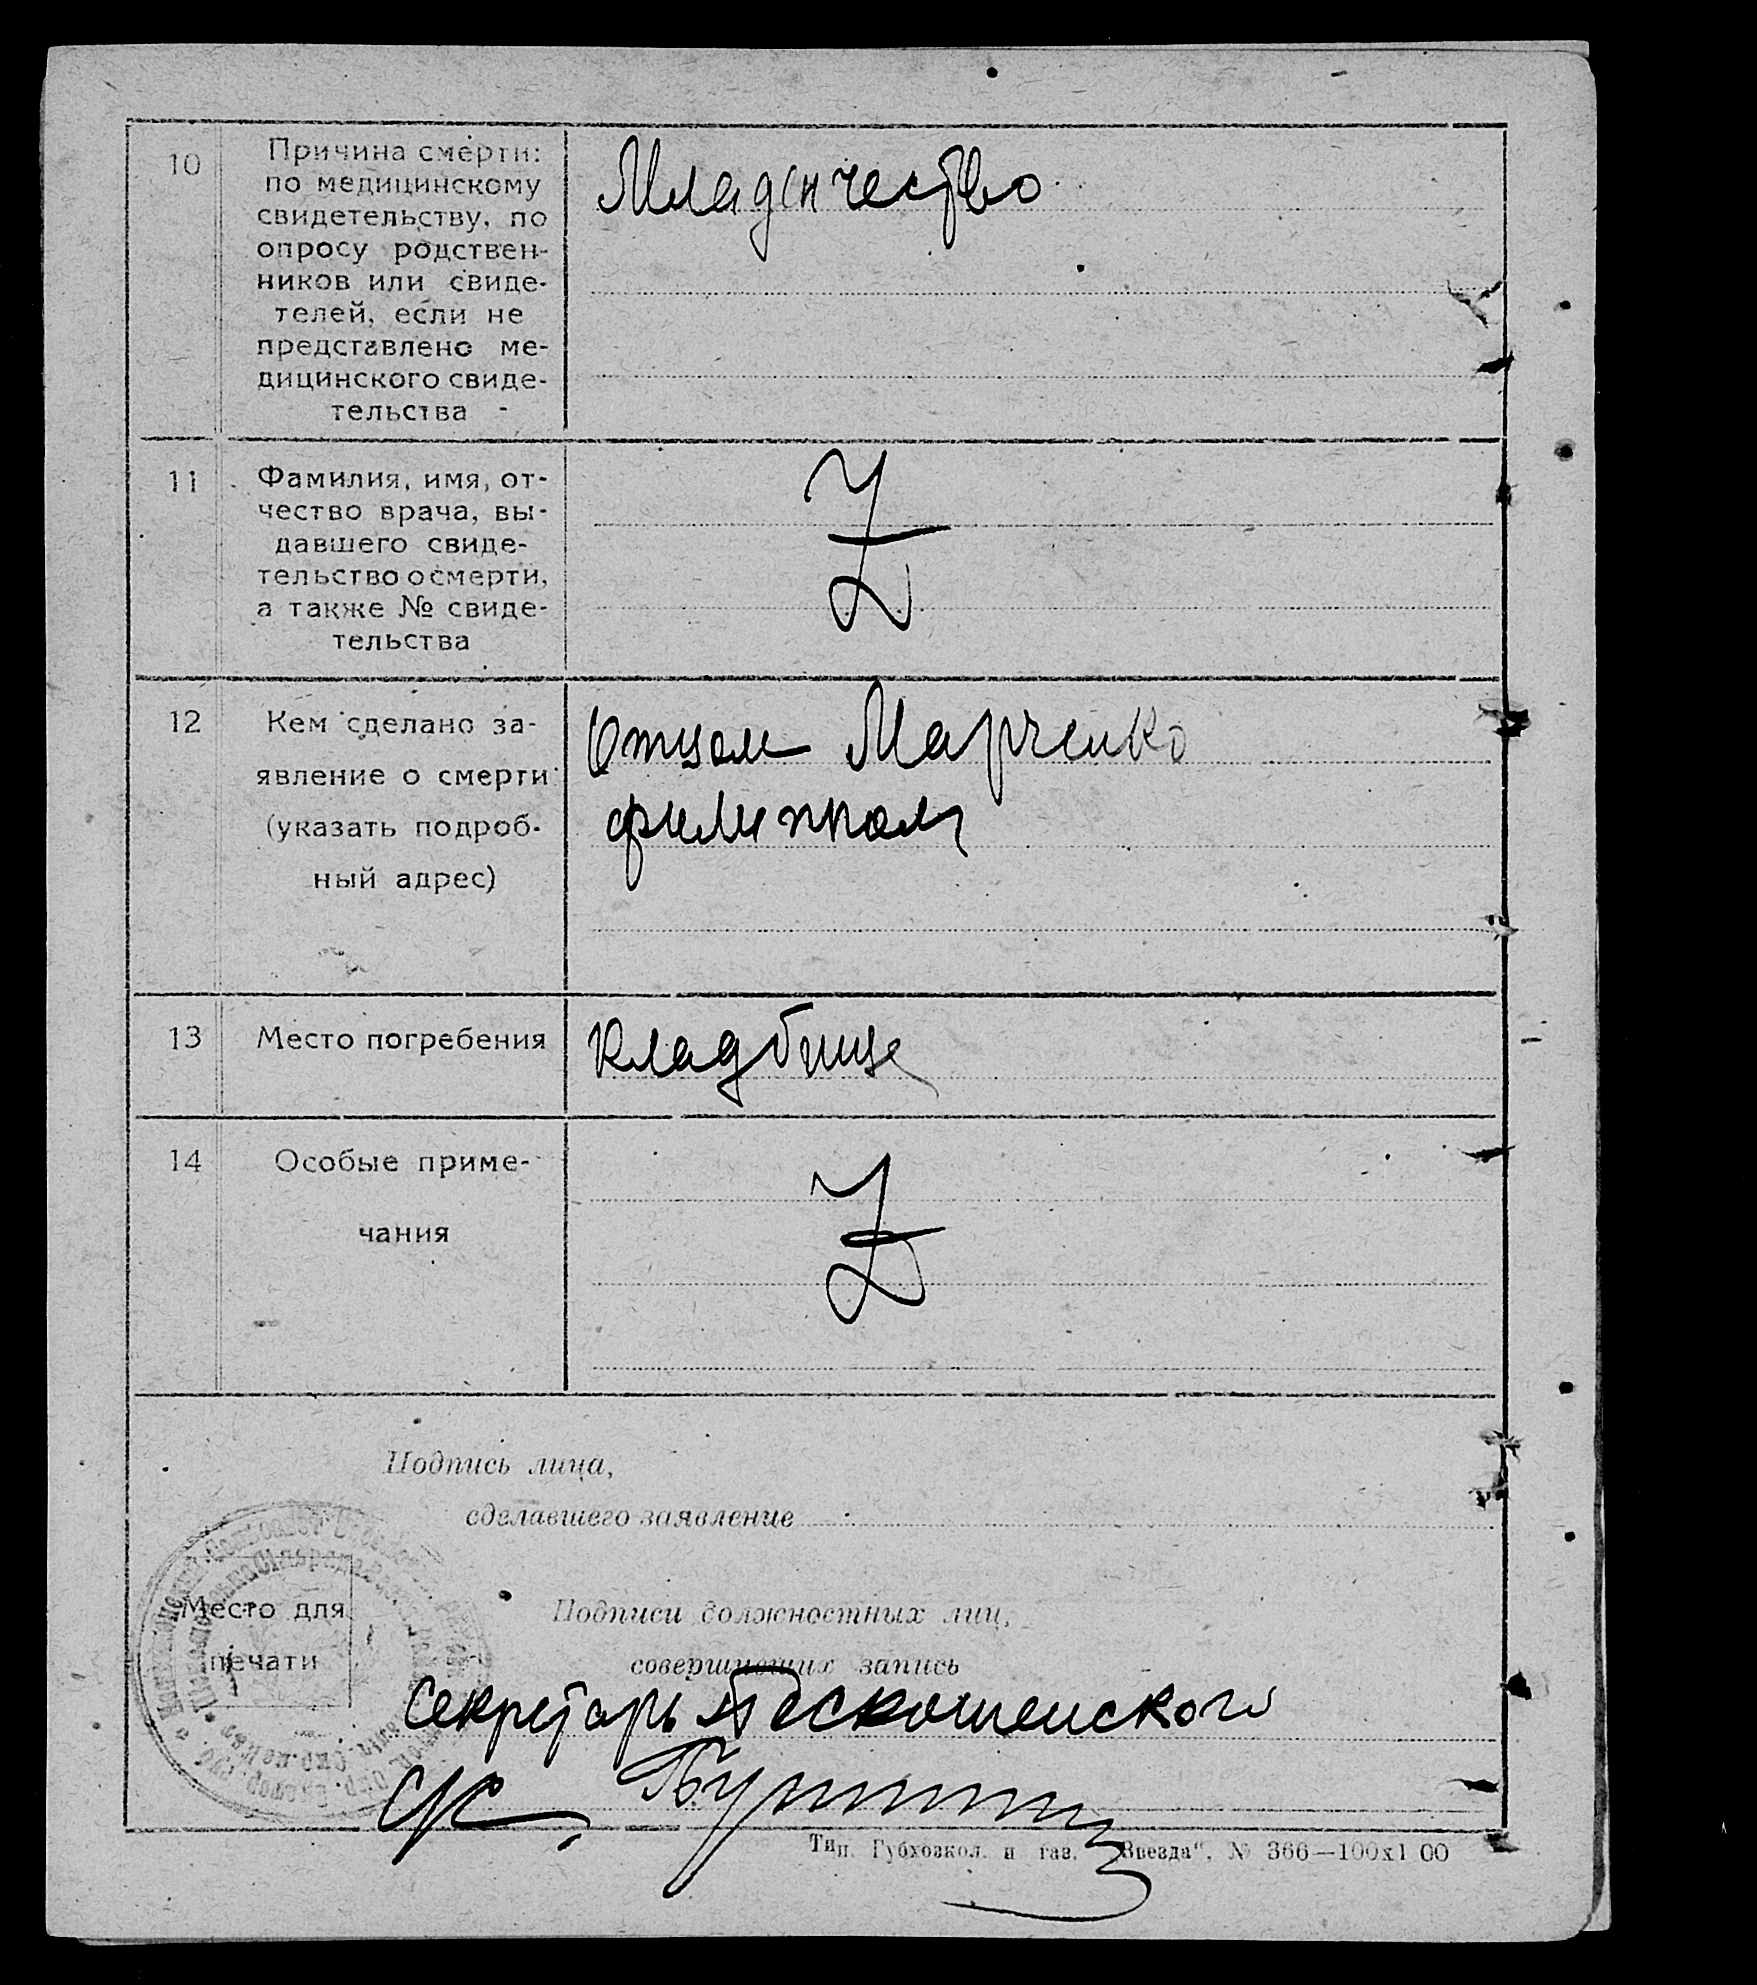 10
Причина смерти:
по медицинскому
свидетельству, по
опросу родствен-
ников или свиде-
телей, если не
представлено ме-
дицинского свиде-
тельства -
Младенчество
11
Фамилия, имя, от-
чество врача, вы-
давшего свиде-
тельство о смерти,
а также № свиде-
тельства
Z
12
Кем сделано за-
явление о смерти
(указать подроб-
ный адрес)
Отцом Марченко
Филиппом
13
Место погребения
Кладбище
14
Особые приме-
чания
Z
Подпись лица,
сделавшего заявление
Место для
печати
Подписи должностных лиц,
совершивших запись
Секретарь
Тип. Губхозкол. и газ. „Звезда“, № 366—100х1 00